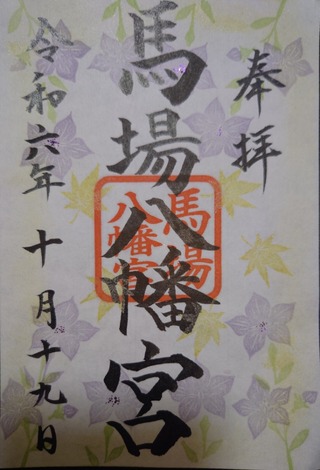 奉拝
馬場八幡宮
馬場
八幡宮
令和六年 十月十九日